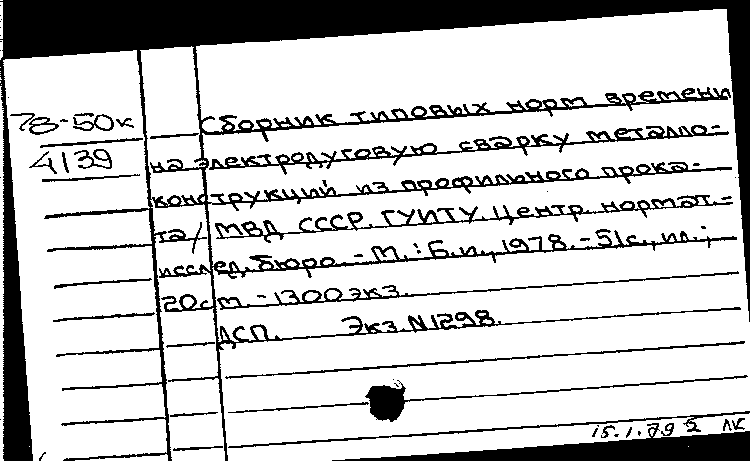 78-50к
4139
Сборник типовых норм времени
на электродуговую сварку металло-
конструкций из профильного прока-
та / МВД СССР. ГУИТУ. Центр. нормат.-
исслед. бюро. - М. : Б.и., 1978. - 51с., ил.;
20см. - 1300 экз.
ДСП. Экз. N1298.
15.1.79 2 ЛК